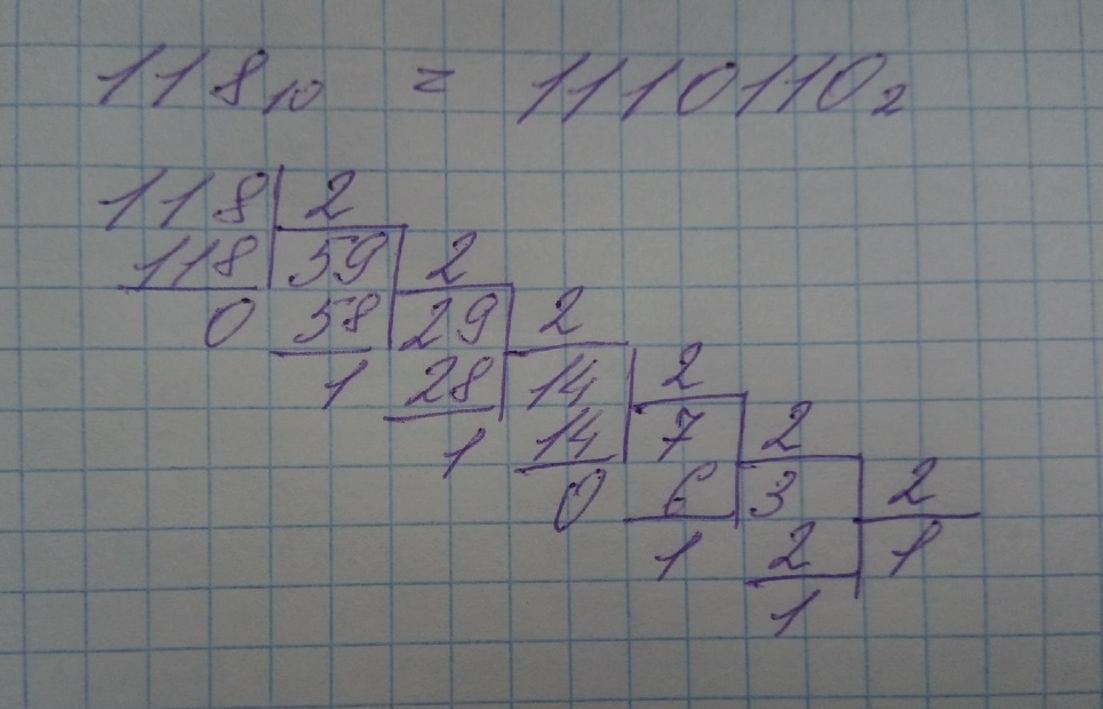 118₁₀ = 1110110₂
118 2
118 59 2
0 58 29 2
1 28 14 2
1 14 7 2
0 6 3 2
1 2 1
1